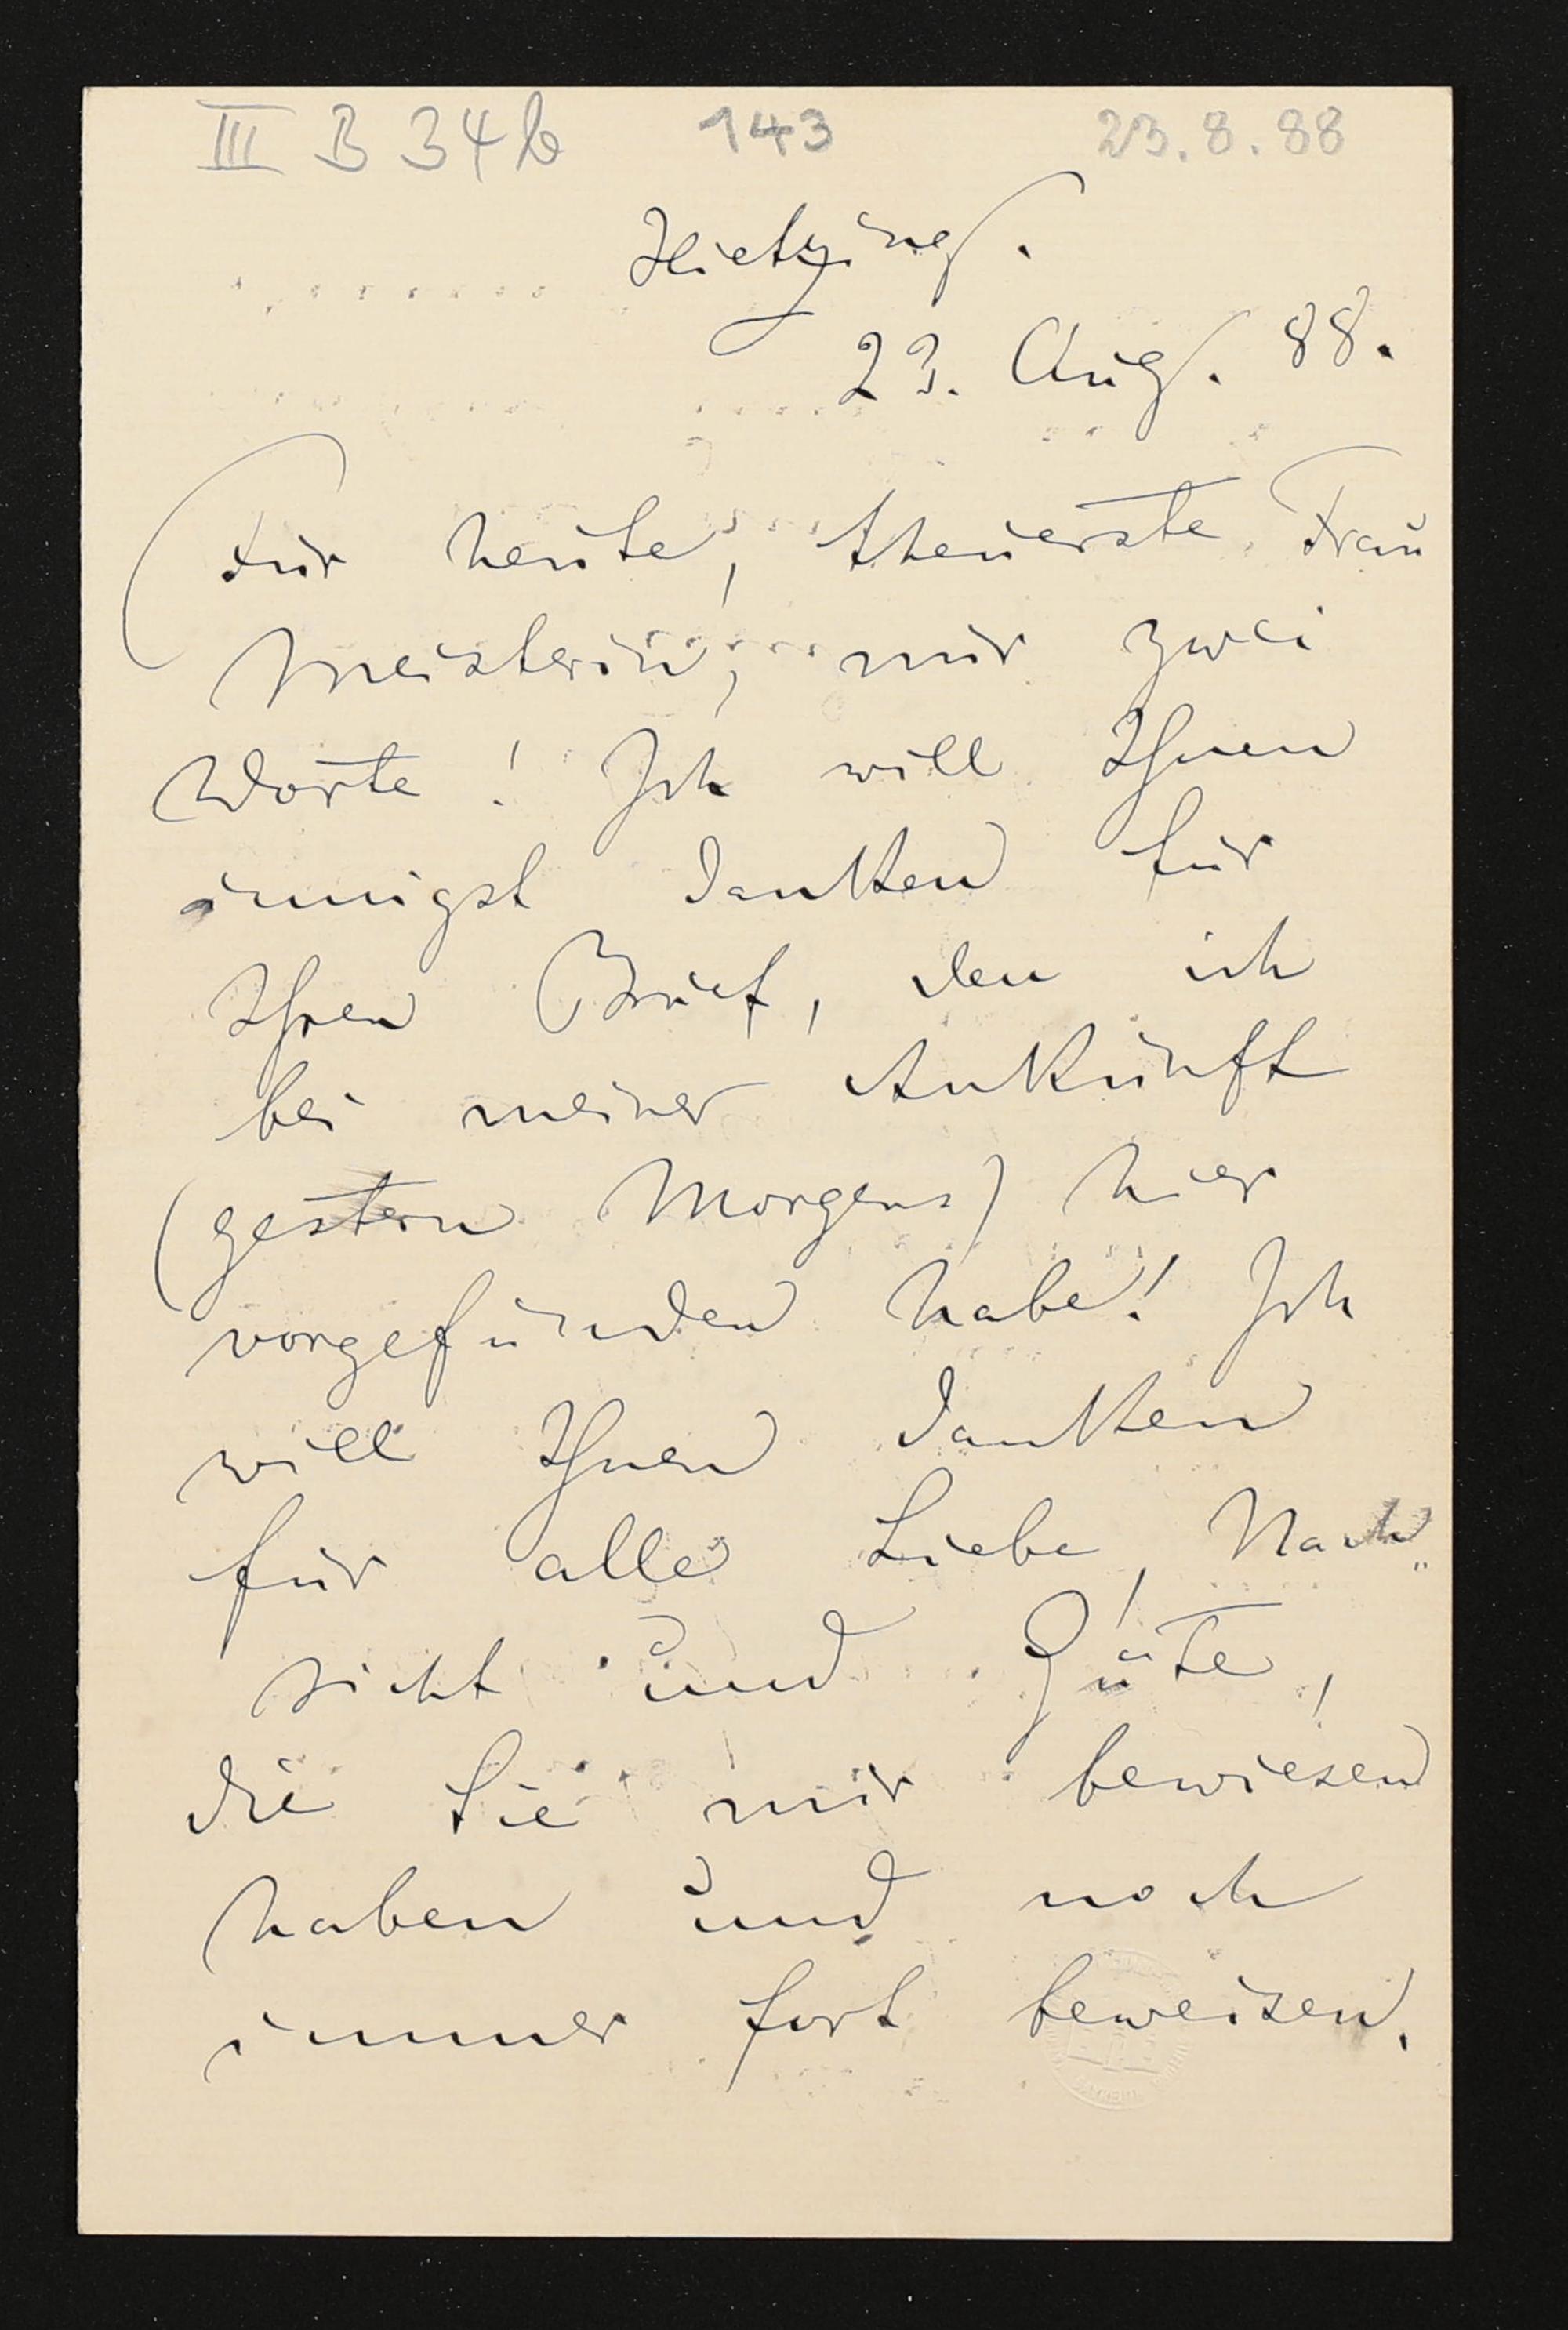 III B 34b 143 23.8.88
Hietzing.
23. Aug. 88.
Für heute, theuerste Frau
Meisterin, nur zwei
Worte! Ich will Ihnen
innigst danken für
Ihren Brief, den ich
bei meiner Ankunft
(gestern Morgens) hier
vorgefunden habe! Ich
will Ihnen danken
für alle Liebe, Nach„
sicht und Güte,
die Sie mir bewiesen
haben und noch
immer fort beweisen.